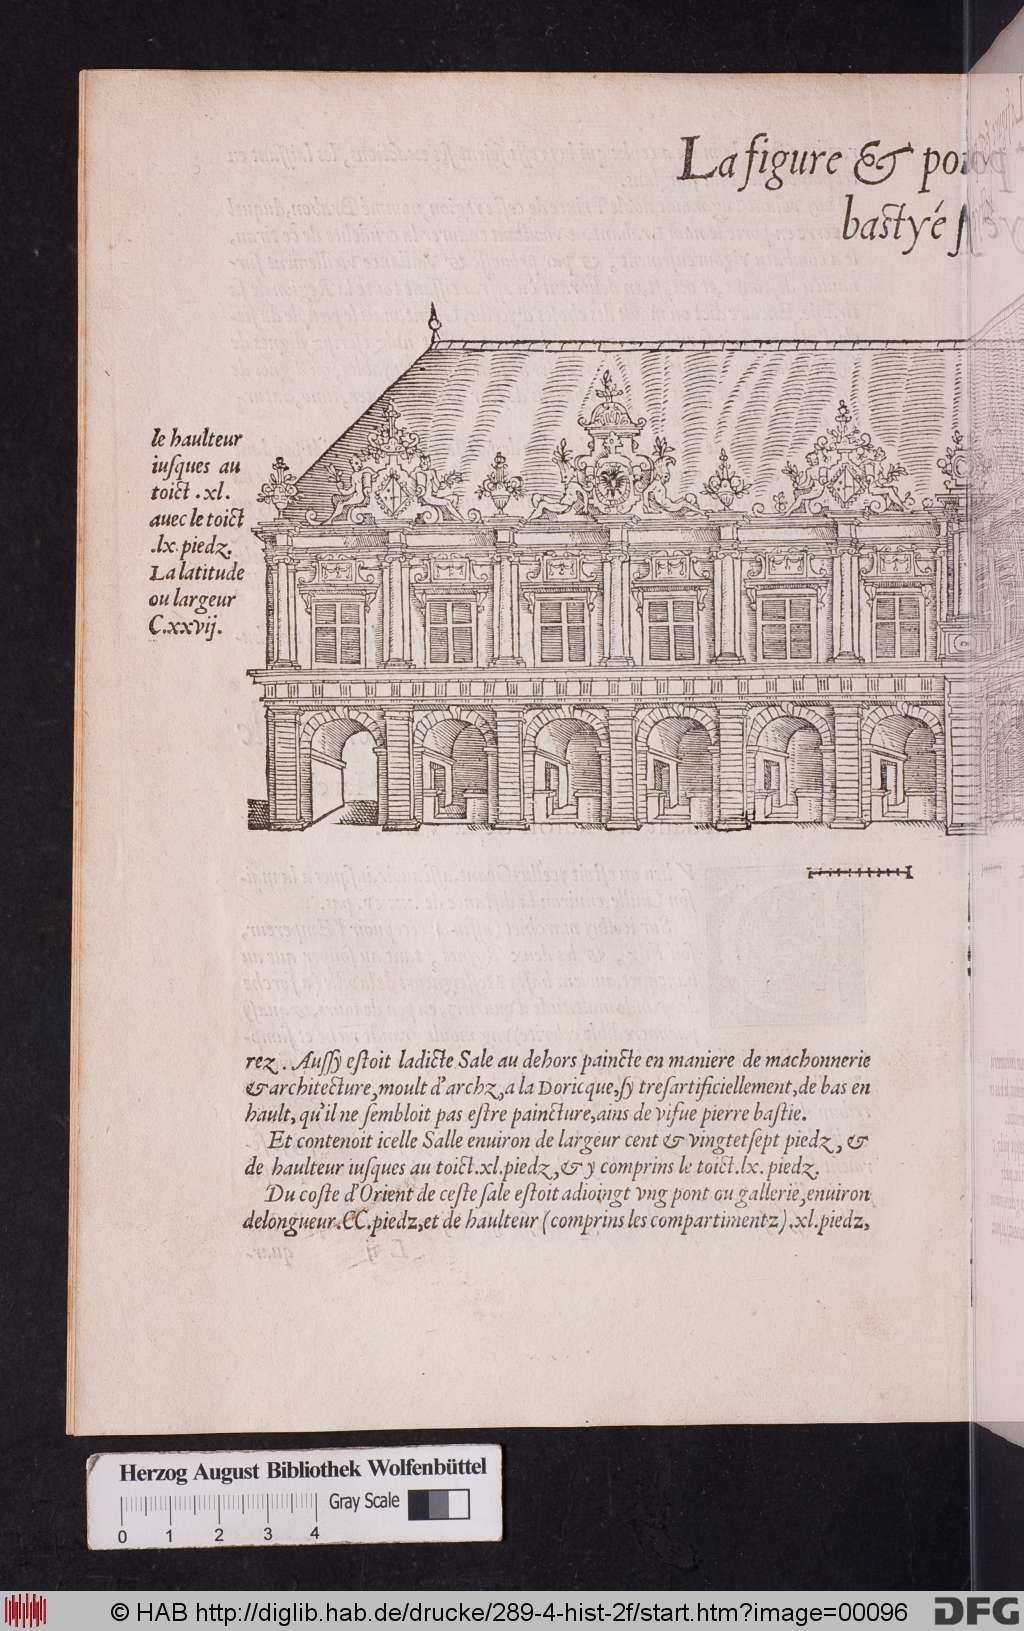 La figure & po
bastyé ſ
le haulteur
iuſques au
toict .xl.
auec le toict
.lx. piedz.
La latitude
ou largeur
C.xxvij.
rez. Auſſy eſtoit ladicte Sale au dehors paincte en maniere de machonnerie
& architecture, moult d'archz, a la Doricque, ſy treſartificiellement, de bas en
hault, qu'il ne ſembloit pas eſtre paincture, ains de viſue pierre baſtie.
Et contenoit icelle Salle enuiron de largeur cent & vingtetſept piedz, &
de haulteur iuſques au toict .xl. piedz, & y comprins le toict .lx. piedz.
Du coſte d'Orient de ceſte ſale eſtoit adioingt vng pont ou gallerie, enuiron
delongueur .CC. piedz, et de haulteur (comprins les compartimentz) .xl. piedz,
Herzog August Bibliothek Wolfenbüttel
Gray Scale
0 1 2 3 4
© HAB http://diglib.hab.de/drucke/289-4-hist-2f/start.htm?image=00096
DFG